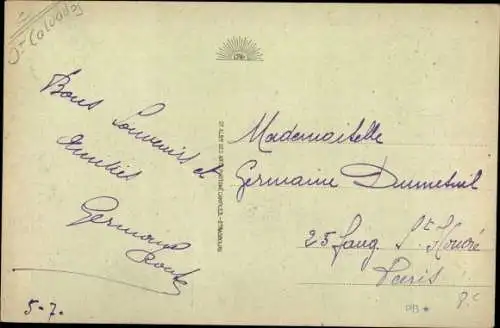 Calvados
Bons Souvenirs et
Amitiés
Germaine
5-7.
Mademoiselle
Germaine Dumetuil
25 faug. St Honoré
Paris